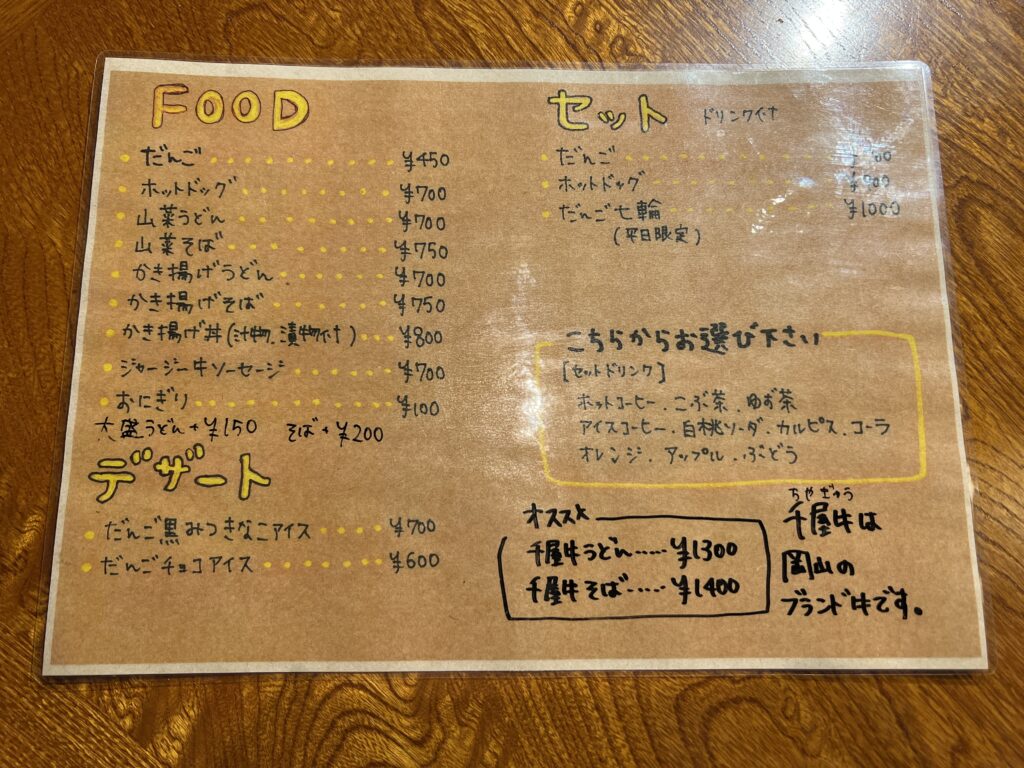 FOOD
だんご ¥450
ホットドッグ ¥700
山菜うどん ¥700
山菜そば ¥750
かき揚げうどん ¥700
かき揚げそば ¥750
かき揚げ丼(汁物、漬物付) ¥800
ジャージー牛ソーセージ ¥700
おにぎり ¥100
大盛うどん+¥150 そば+¥200
デザート
だんご黒みつきなこアイス ¥700
だんごチョコアイス ¥600
セット ドリンク付
だんご
ホットドッグ ¥900
だんご七輪 ¥1000
(平日限定)
こちらからお選び下さい
[セットドリンク]
ホットコーヒー、こぶ茶、ゆず茶
アイスコーヒー、白桃ソーダ、カルピス、コーラ
オレンジ、アップル、ぶどう
オススメ
千屋牛うどん.....¥1300
千屋牛そば.....¥1400
ちやぎゅう
千屋牛は
岡山の
ブランド牛です。